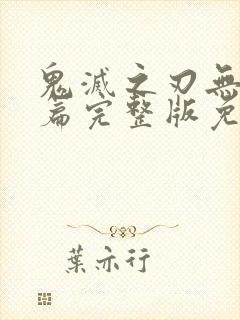 鬼滅之刃無
篇完整版免
葉亦行